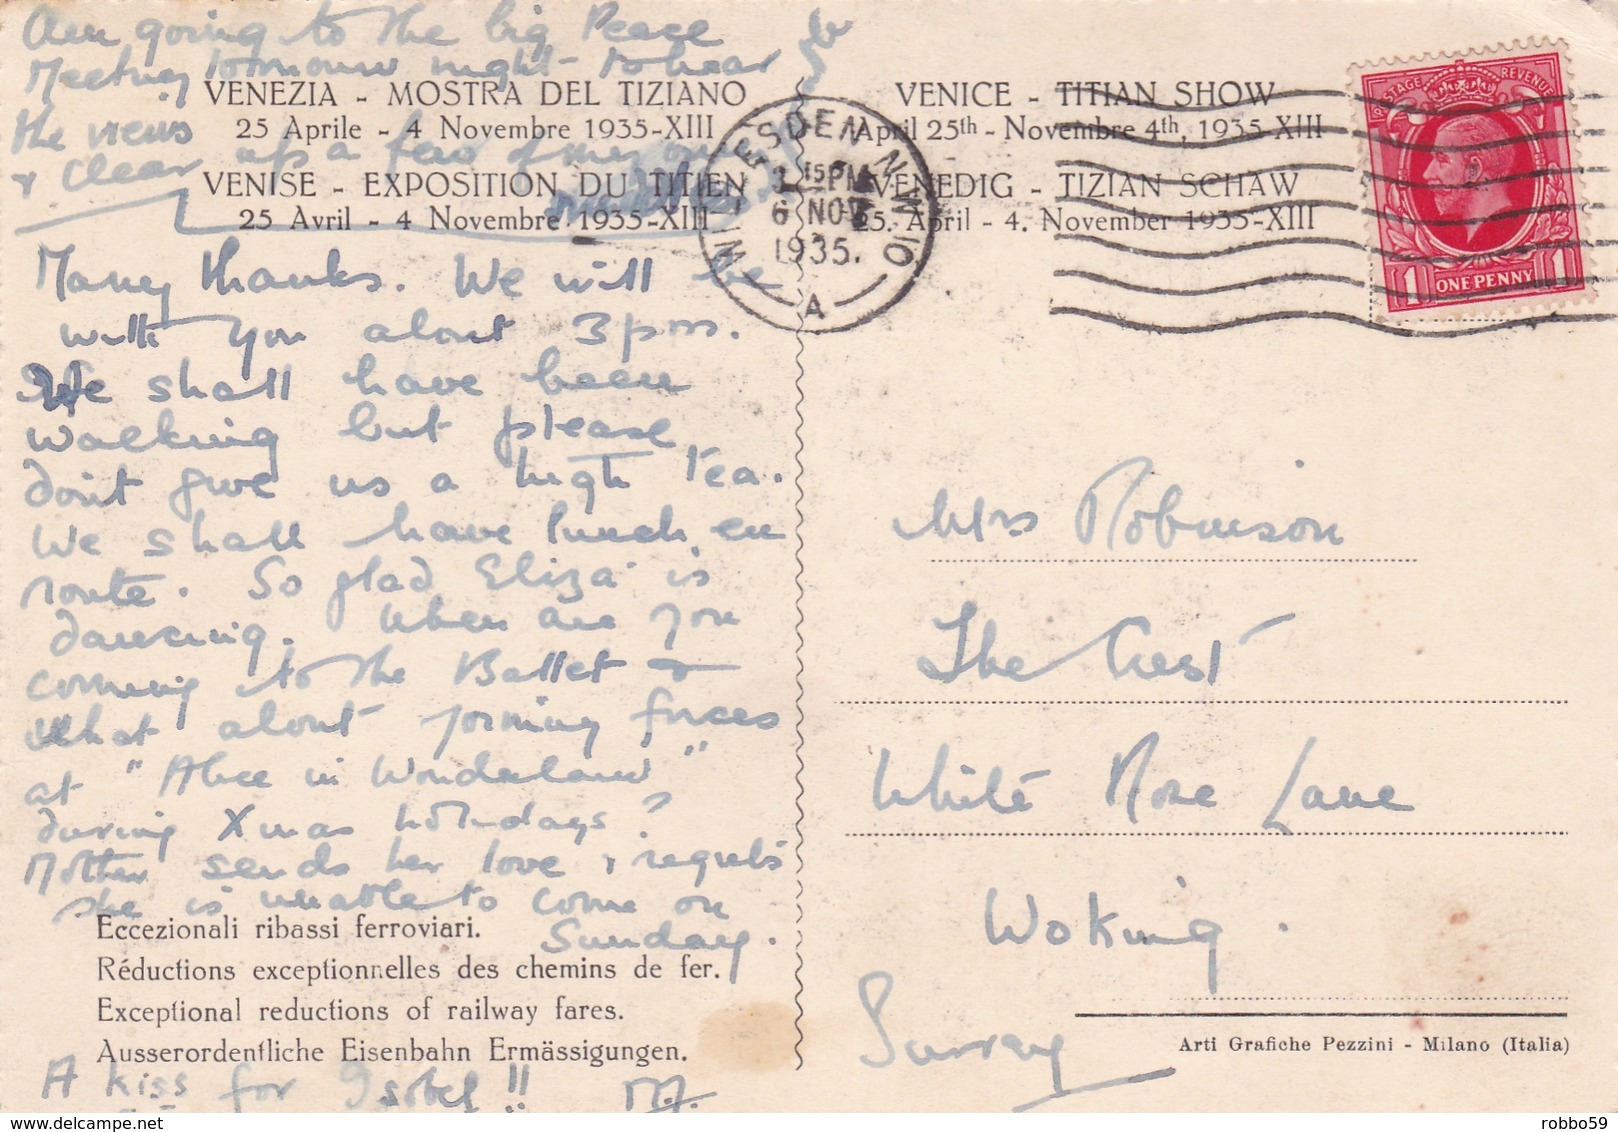 Am going to the big Peace
Meeting tomorrow night - to hear
the views
& clear up a few of my own
VENEZIA - MOSTRA DEL TIZIANO
25 Aprile - 4 Novembre 1935-XIII
VENISE - EXPOSITION DU TITIEN
25 Avril - 4 Novembre 1935-XIII
VENICE - TITIAN SHOW
April 25th - November 4th, 1935-XIII
VENEDIG - TIZIAN SCHAW
25. April - 4. November 1935-XIII
WILLESDEN N.W.10
3 15 PM
6 NOV
1935.
A
POSTAGE REVENUE
1 ONE PENNY 1
Many thanks. We will be
with you about 3 pm.
We shall have been
walking but please
don't give us a high tea.
We shall have lunch en
route. So glad Eliza is
dancing. When are you
coming to the Ballet &
what about joining forces
at "Alice in Wonderland"
during Xmas holidays?
Mother sends her love & regrets
she is unable to come on
Sunday.
Eccezionali ribassi ferroviari.
Réductions exceptionnelles des chemins de fer.
Exceptional reductions of railway fares.
Ausserordentliche Eisenbahn Ermässigungen.
A kiss for Isobel !! M.J.
Mrs Robinson
The Crest
White Rose Lane
Woking.
Surrey
Arti Grafiche Pezzini - Milano (Italia)
robbo59